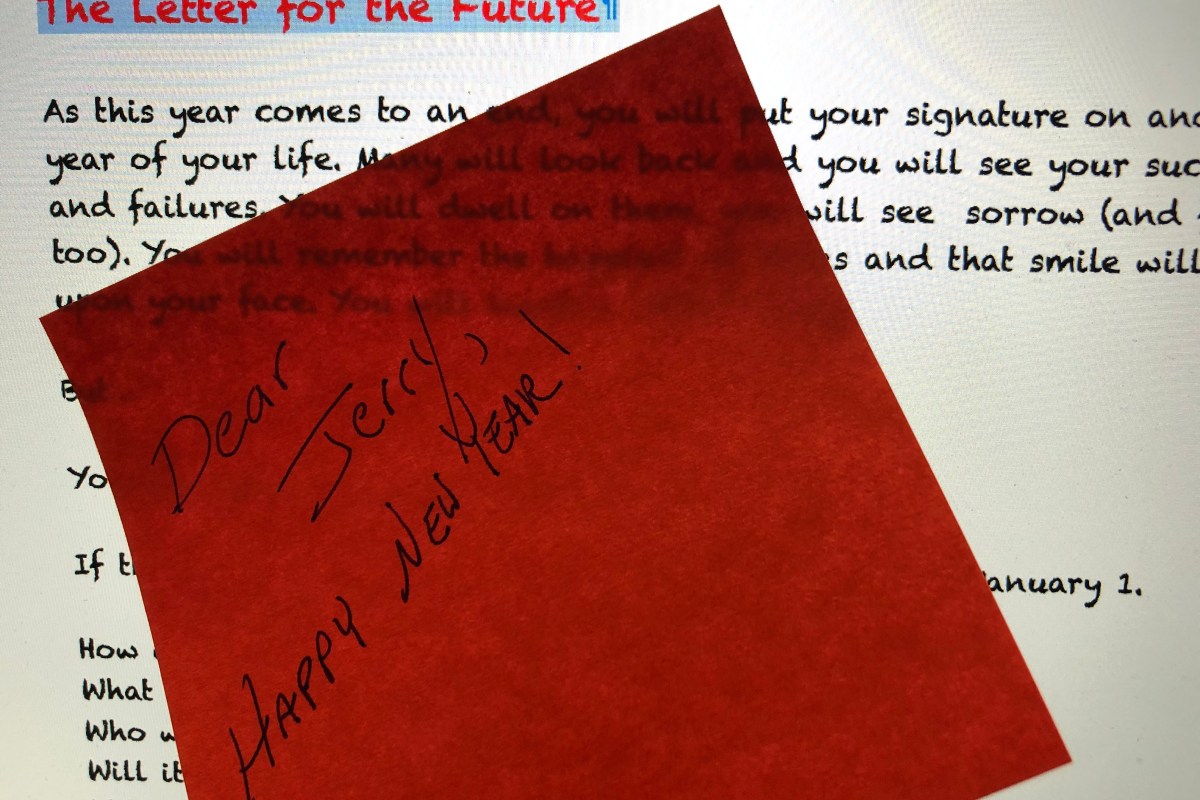 The Letter for the Future
As this year comes to an end, you will put your signature on
year of your life. Many will look back and you will see your
and failures. You will dwell on will see sorrow (and
too). You will remember the and that smile will
upon your face. You will
If
January 1.
How
What
Who
Will it
Dear
Jerry,
HAPPY NEW YEAR!